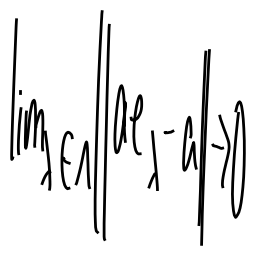 |lim_{λ∈Λ}||ae_λ-a||→0